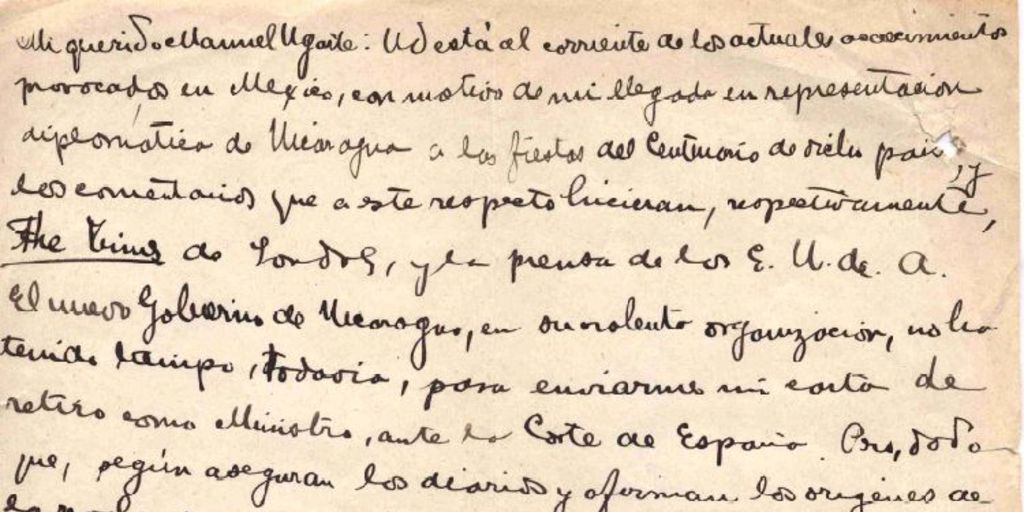 Mi querido Manuel Ugarte: Ud está al corriente de los actuales acaecimientos
provocados en Mexico, con motivo de mi llegada en representación
diplomática de Nicaragua a las fiestas del Centenario de dicho país, y
los comentarios que a este respecto hicieran, respectivamente,
The Times de Londres, y la prensa de los E. U. de. A.
El nuevo Gobierno de Nicaragua, en su violenta organización, no ha
tenido tiempo, todavia, para enviarme mi carta de
retiro como Ministro, ante la Corte de España. Pero, dado
que, según aseguran los diarios y afirman los orígenes de